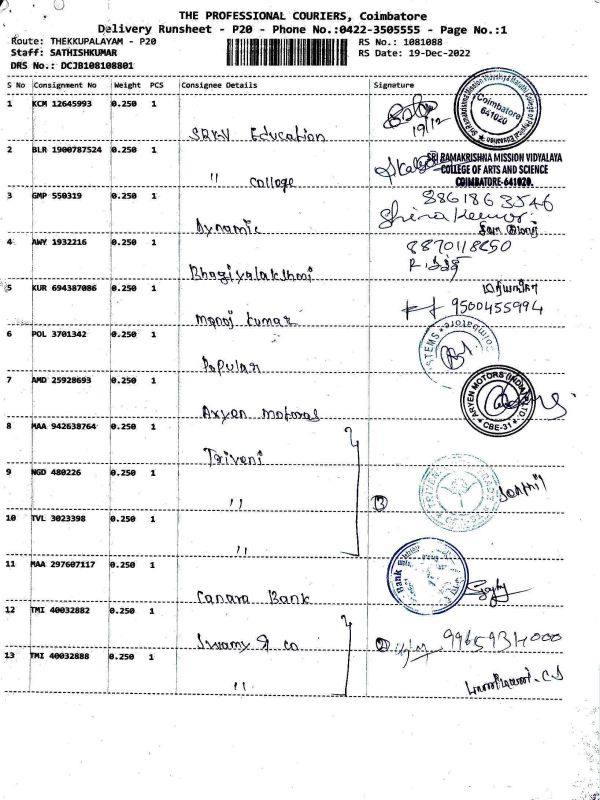 THE PROFESSIONAL COURIERS, Coimbatore
Delivery Runsheet - P20 - Phone No.:0422-3505555 - Page No.:1
Route: THEKKUPALAYAM - P20 RS No.: 1081088
Staff: SATHISHKUMAR RS Date: 19-Dec-2022
DRS No.: DCJB108108801
S No Consignment No Weight PCS Consignee Details Signature
1 KCM 12645993 0.250 1
SRKV Education 19/12
Coimbatore 641020
2 BLR 1900787524 0.250 1
" college
SRI RAMAKRISHNA MISSION VIDYALAYA
COLLEGE OF ARTS AND SCIENCE
COIMBATORE-641020.
3 GMP 550319 0.250 1 8861863546
Dynamic
4 AWY 1932216 0.250 1 8870118650
Bhagiyalakshmi
5 KUR 694387086 0.250 1 9500455994
Manoj kumar
6 POL 3701342 0.250 1
Popular
7 AMD 25928693 0.250 1
Aryen motoras
ARYEN MOTORS (INDIA) LTD
CBE-31
8 MAA 942638764 0.250 1
Triveni
9 NGD 480226 0.250 1
" ③
10 TVL 3023398 0.250 1
"
11 MAA 297607117 0.250 1
Canara Bank
12 TMI 40032882 0.250 1
Swamy & co ② 9965931000
13 TMI 40032888 0.250 1
"